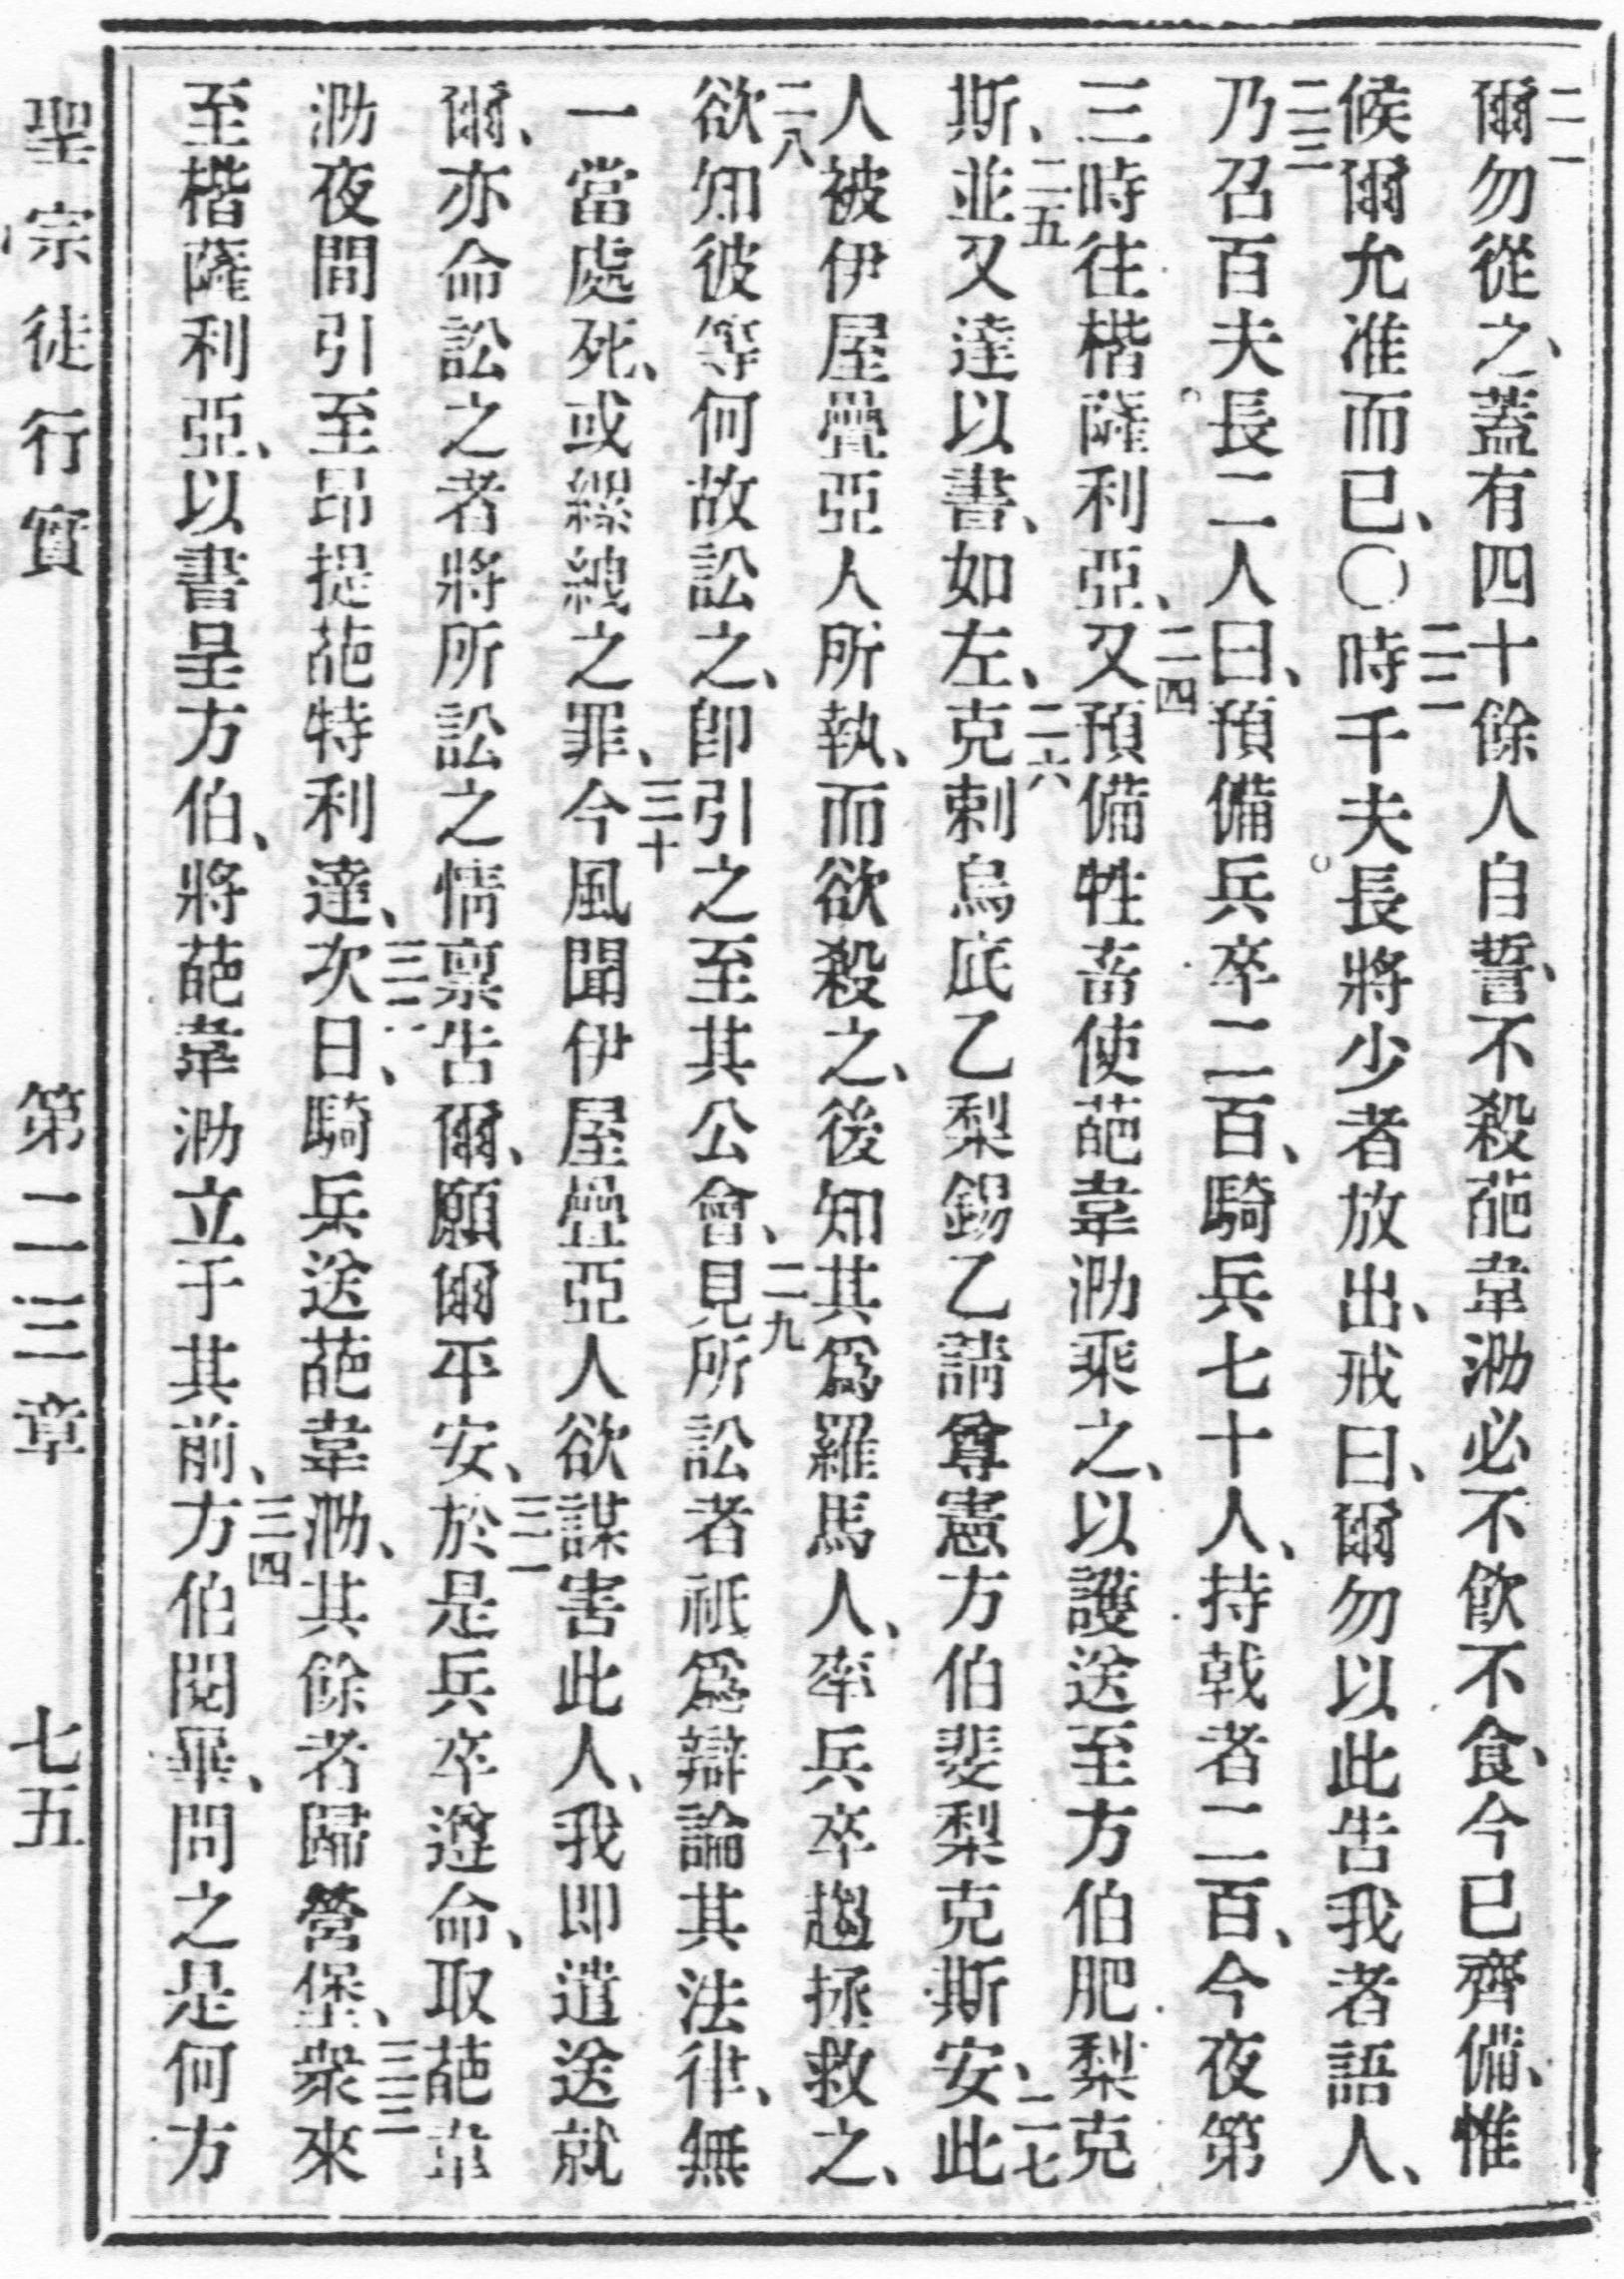 二一爾勿從之、蓋有四十餘人自誓、不殺葩韋泐必不飲不食、今已齊備、惟
候爾允准而已、〇二二時千夫長將少者放出、戒曰、爾勿以此告我者語人、
二三乃召百夫長二人曰、預備兵卒二百、騎兵七十人、持戟者二百、今夜第
三時往楷薩利亞、二四又預備牲畜使葩韋泐乘之、以護送至方伯肥梨克
斯、二五並又達以書、如左、二六克剌烏底乙梨錫乙請尊憲方伯斐梨克斯安、二七此
人被伊屋疊亞人所執、而欲殺之、後知其爲羅馬人、率兵卒趨拯救之、
二八欲知彼等何故訟之、卽引之至其公會、二九見所訟者祇爲辯論其法律、無
一當處死、或縲絏之罪、三十今風聞伊屋疊亞人欲謀害此人、我即遣送就
爾、亦命訟之者將所訟之情稟告爾、願爾平安、三一於是兵卒遵命、取葩韋
泐夜間引至昂提葩特利達、三二次日、騎兵送葩韋泐、其餘者歸營堡、三三衆來
至楷薩利亞、以書呈方伯、將葩韋泐立于其前、三四方伯閱畢、問之是何方
聖宗徒行實　第二三章　七五